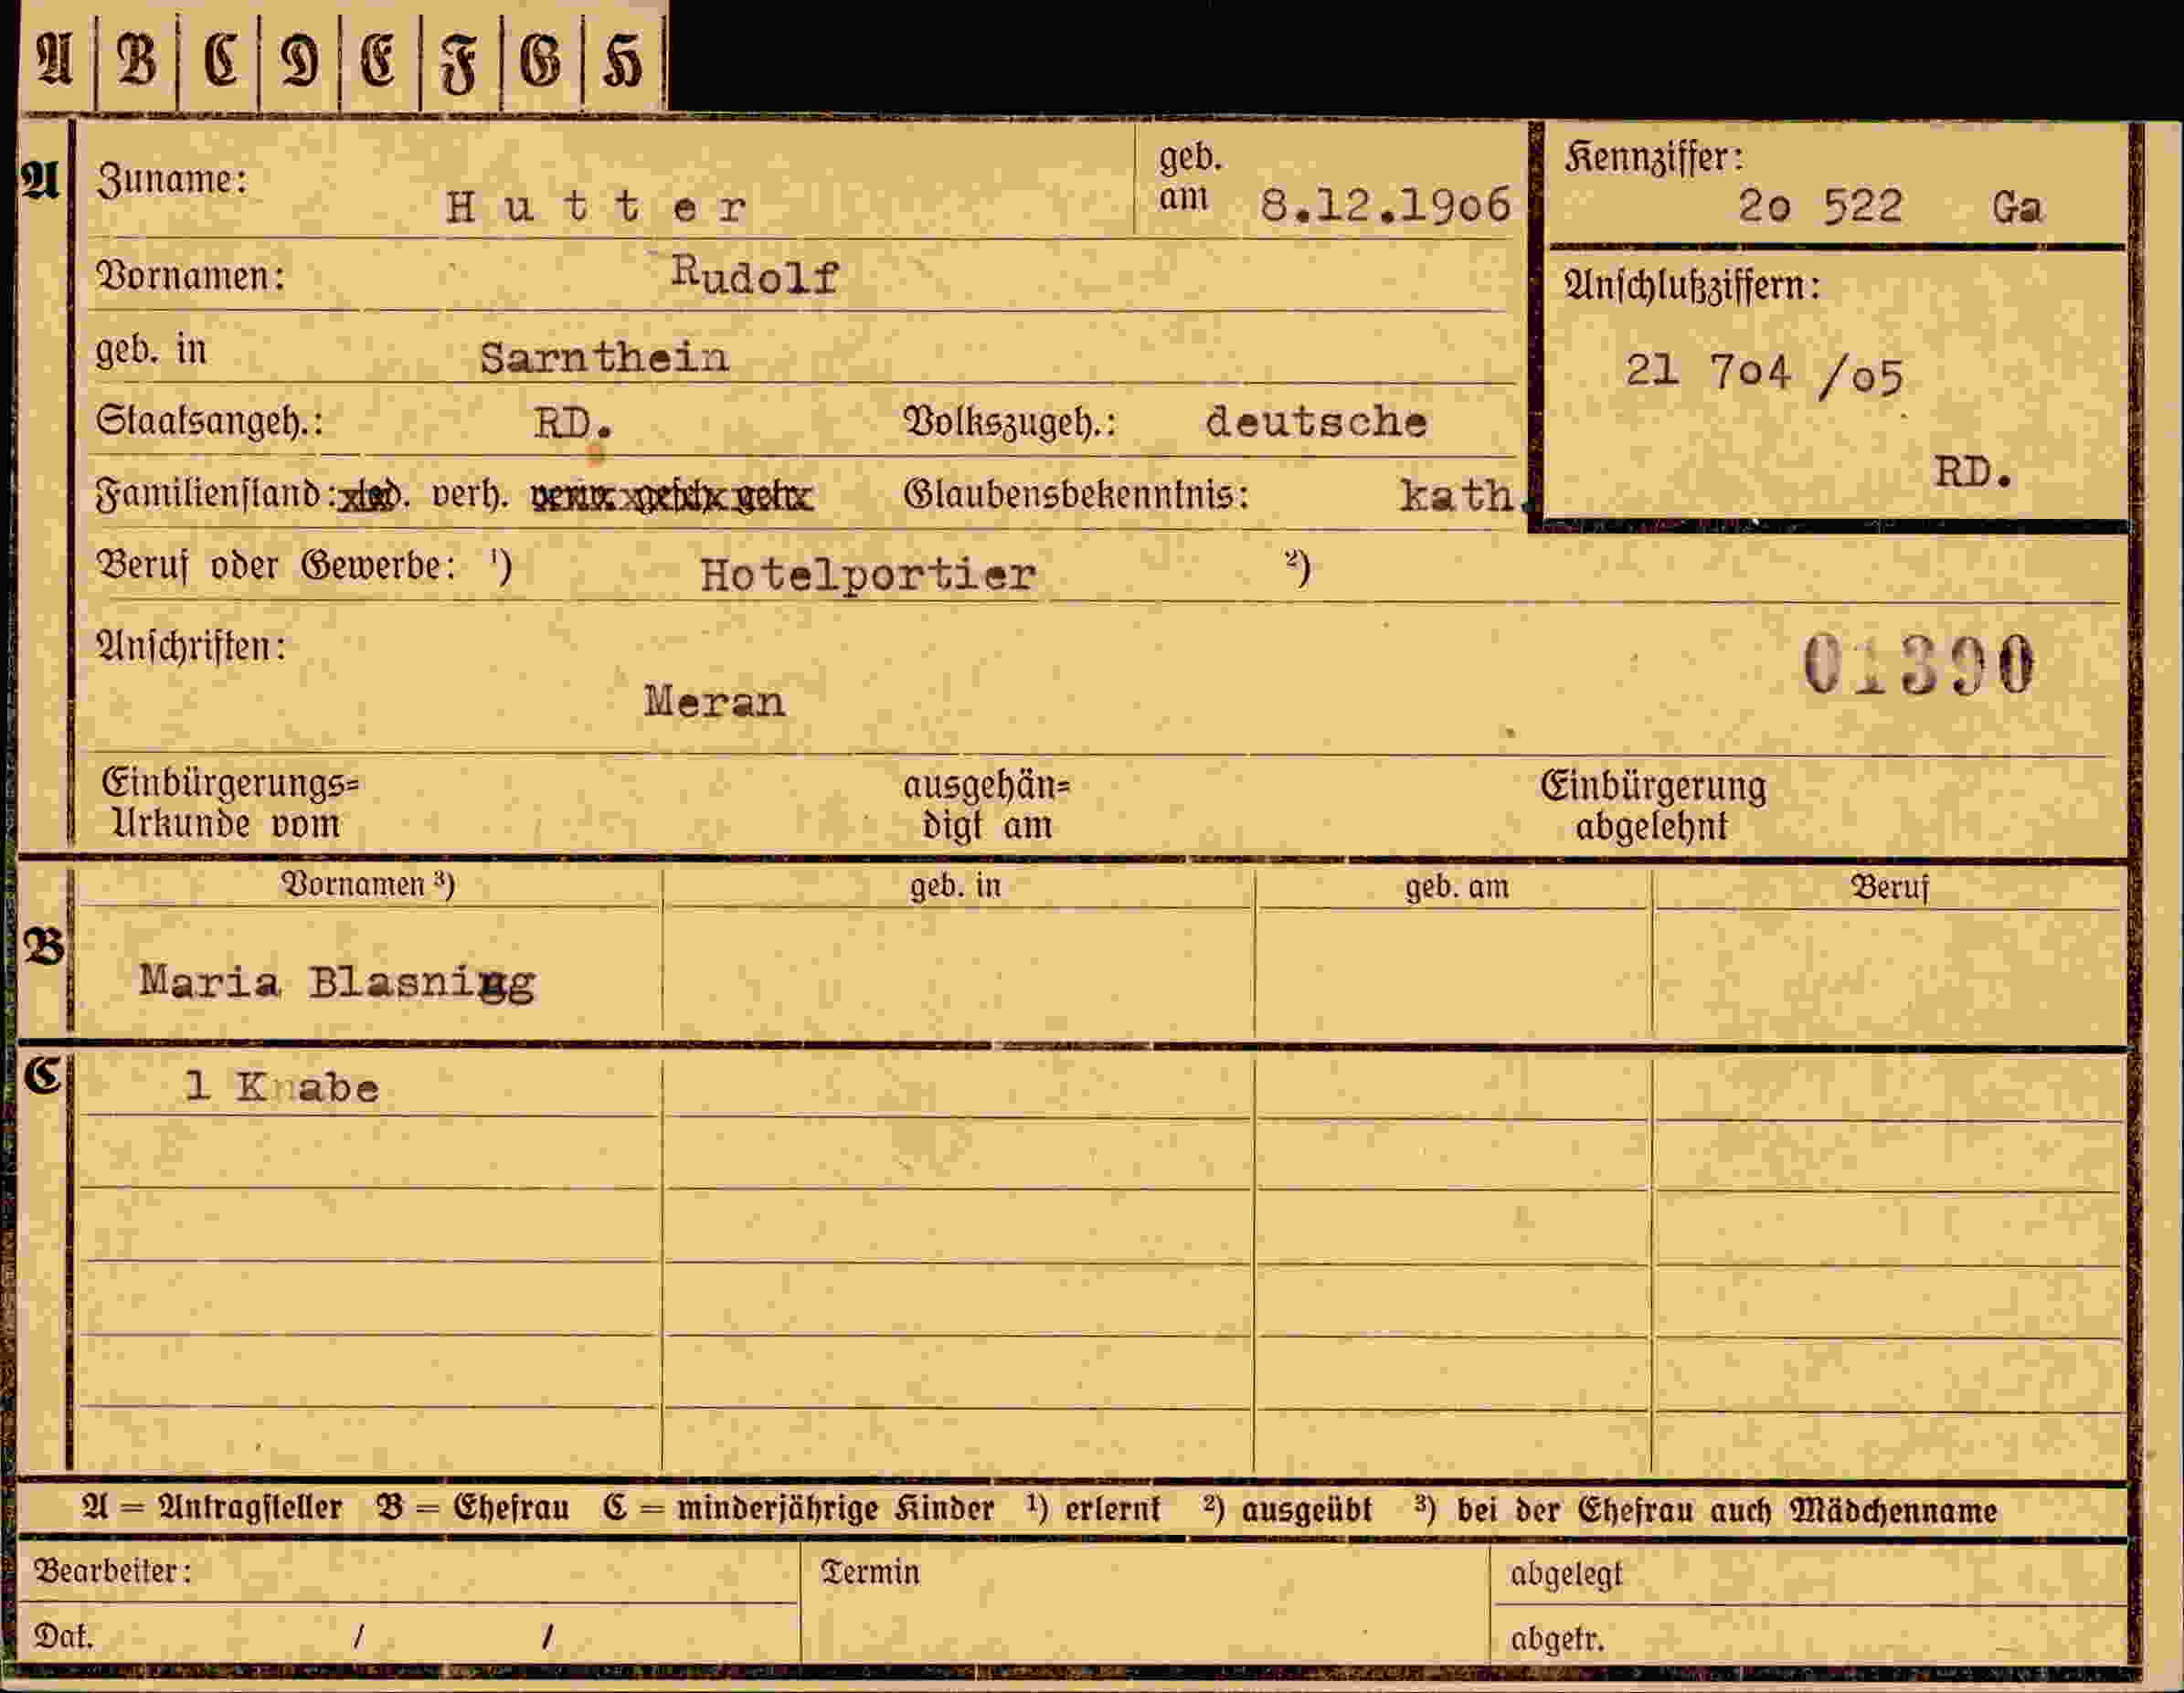 A B C D E F G H
A Zuname: Hutter geb. am 8.12.1906 Kennziffer: 20 522 Ga
Vornamen: Rudolf
geb. in Sarnthein Anschlußziffern:
21 704 /05
Staatsangeh.: RD. Volkszugeh.: deutsche
RD.
Familienstand: led. verh. verw. gesch. getr. Glaubensbekenntnis: kath.
Beruf oder Gewerbe: ¹) Hotelportier ²)
Anschriften: 01390
Meran
Einbürgerungs= ausgehän= Einbürgerung
Urkunde vom digt am abgelehnt
Vornamen ³) geb. in geb. am Beruf
B Maria Blasnigg
C 1 Knabe
A = Antragsteller B = Ehefrau C = minderjährige Kinder ¹) erlernt ²) ausgeübt ³) bei der Ehefrau auch Mädchenname
Bearbeiter: Termin abgelegt
Dat. / / abgetr.